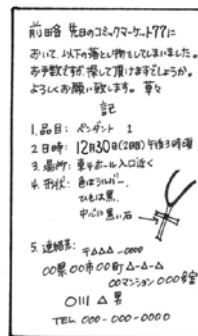 前略 先日のコミックマーケット77に
おいて、以下の落とし物をしてしまいました。
お手数ですが、探して頂けますでしょうか。
よろしくお願い致します。 草々
記
1.品目: ペンダント 1
2.日時: 12月30日(2日目)午後3時頃
3.場所: 東4ホール入口近く
4.形状: 色はシルバー。
ひもは黒。
中心に黒い石
5.連絡先: 〒△△△-0000
〇〇県〇〇市〇〇町△-△-△
〇〇マンション〇〇〇号室
〇川 △男
TEL 000-000-0000